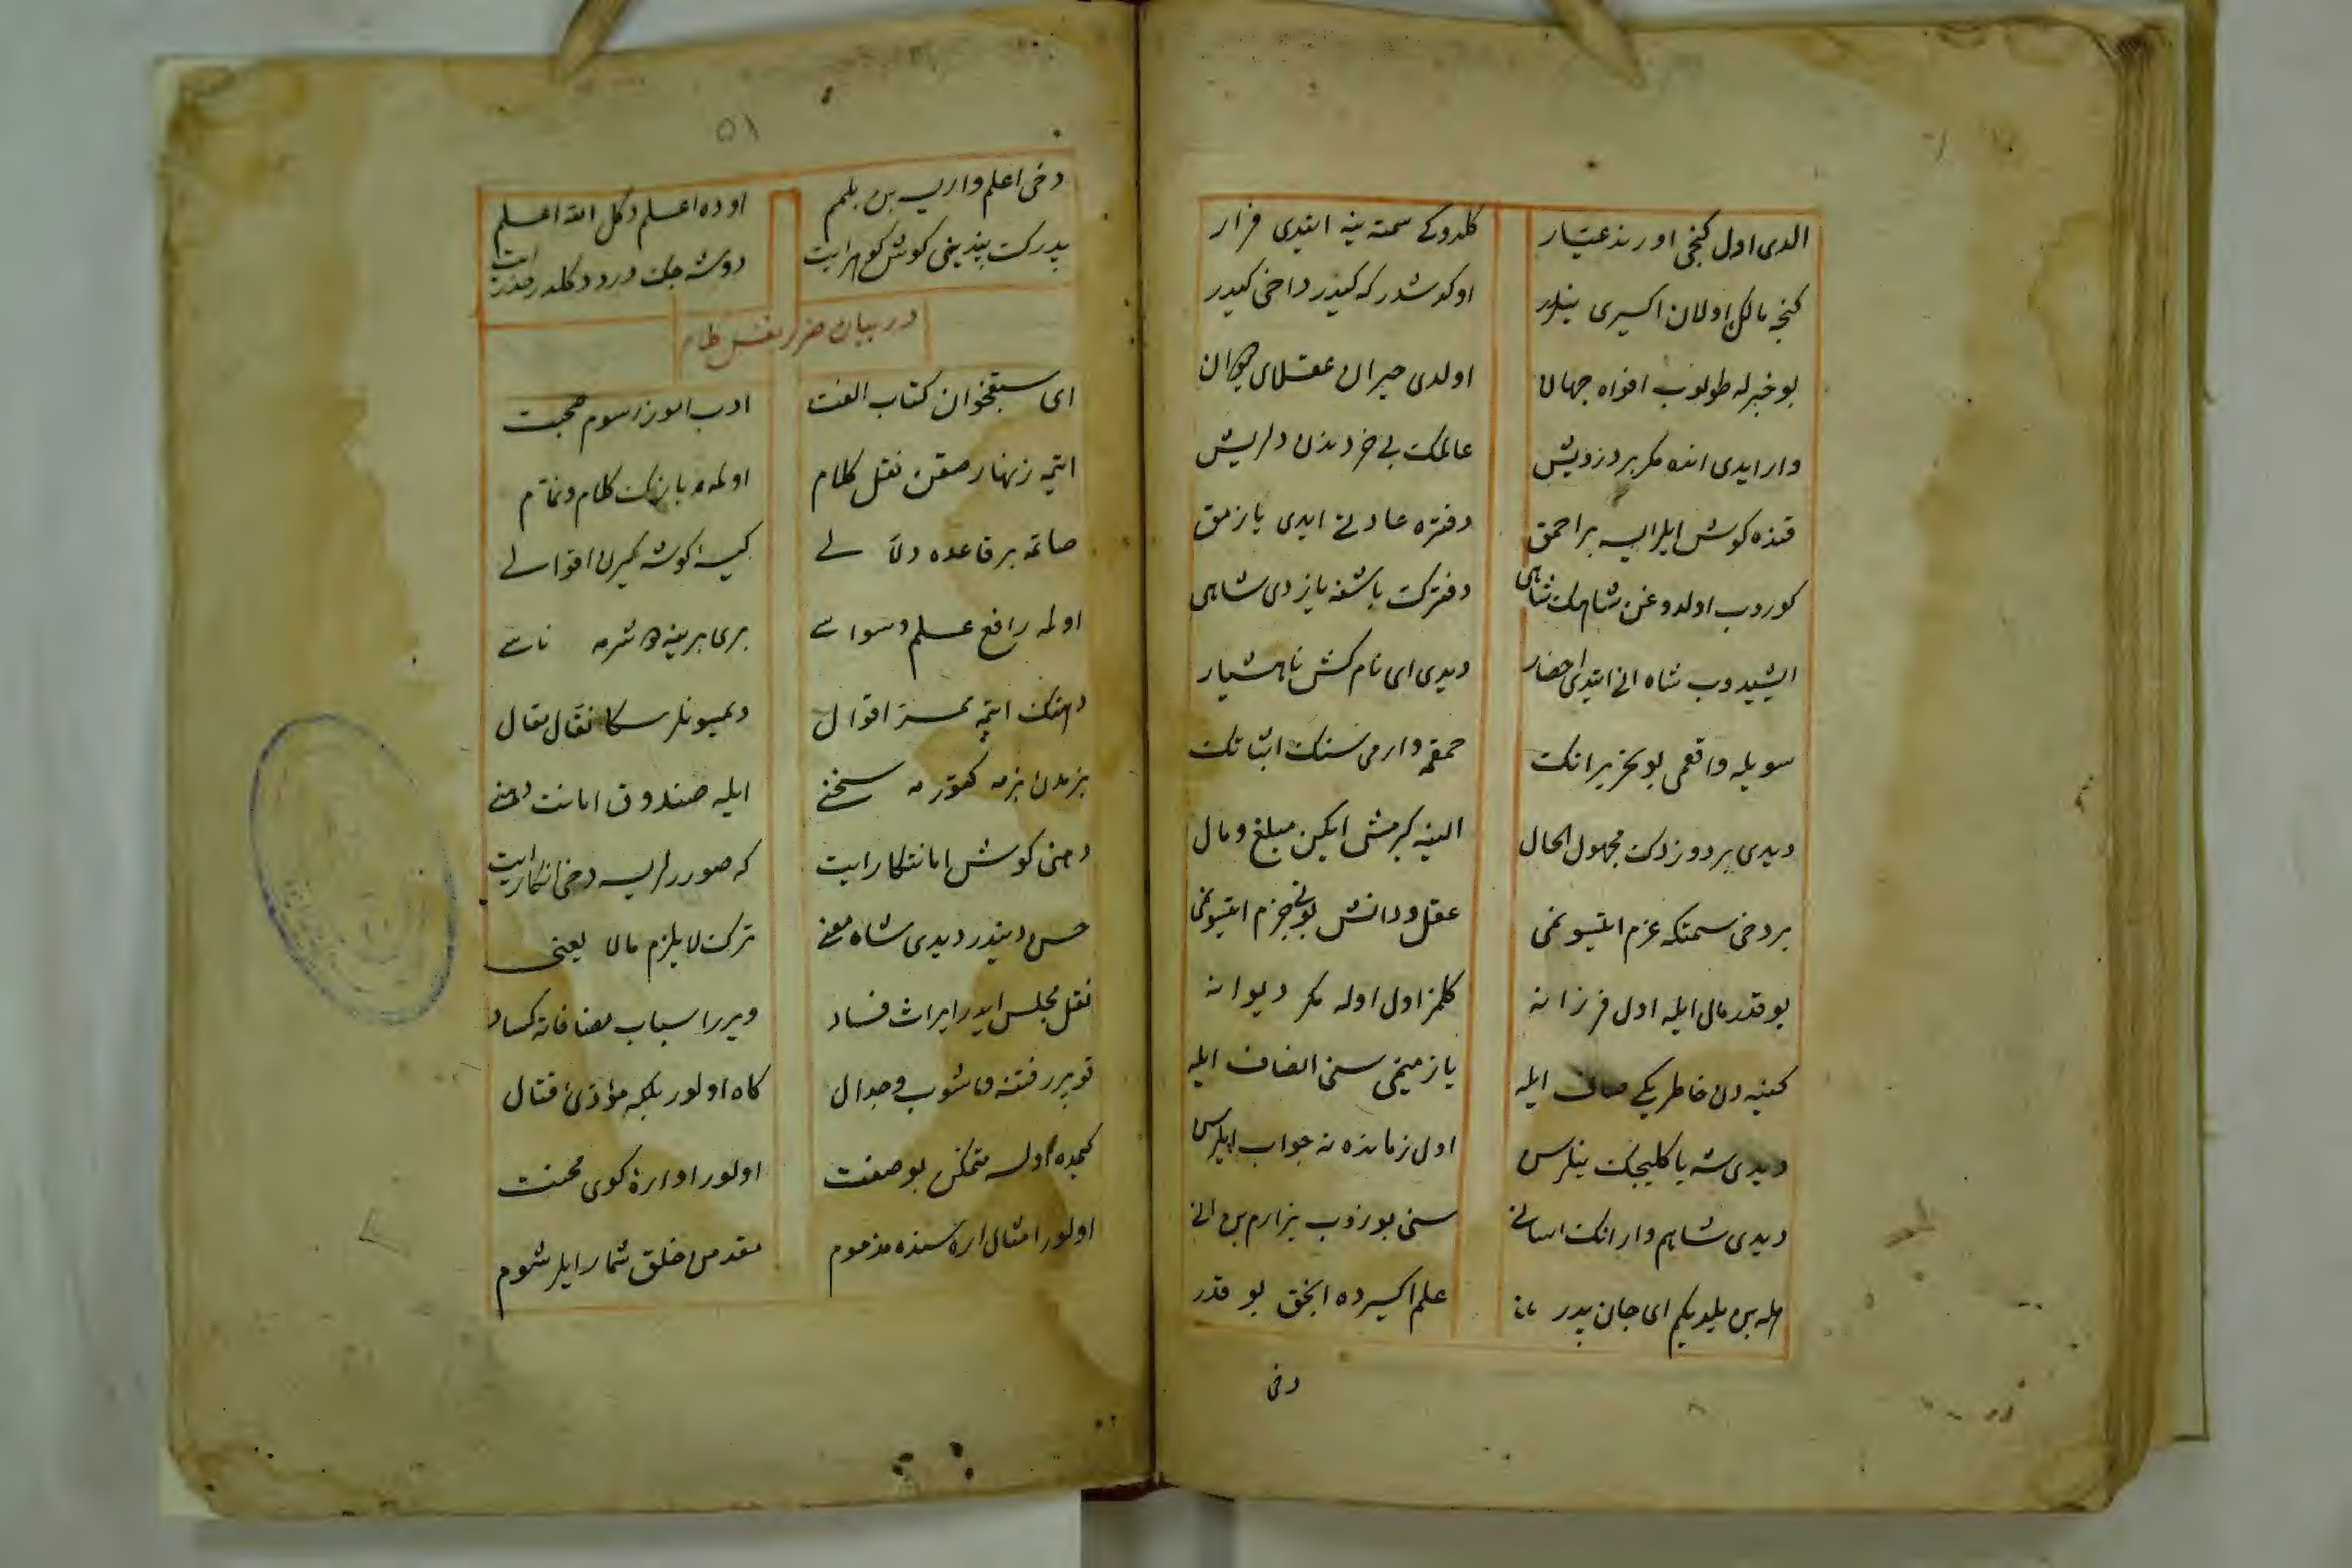 الدی اول کنجی اورنده عیار کلدوکی سمته ینه ایتدی فرار
کنجه مالک اولان اکسیری نیلر اوکدشدر که کیدر داخی کیدر
بو خبرله طولوب افواه جهان اولدی حیران عقلای دوران
وار ایدی انده مکر بر دزویش عالمک بی خردندن دلریش
قنده کوش ایلر ایسه بر احمق دفتره عادتی ایدی یازمق
کوروب اولدوغن شاهک شاهی دفترک باشنه یازدی شاهی
ایشیدوب شاه انی ایتدی احضار دیدی ای نام کش ناهشیار
سویله واقعمی بو تحریرانک حمقه وارمی سنک اثباتک
دیدی بر دوزدک مجهول الحال الینه کیرمش ایکن مبلغ و مال
بر دخی سمتکه عزم ایتسونمی عقل و دانش بونی جزم ایتسونمی
بو قدر مال ایله اول فرزانه کلمز اول اوله مکر دیوانه
کینه دن خاطریکی صاف ایله یازمیخی سنی انصاف ایله
دیدی شه یا کلیجک نیلرسن اول زمانده نه جواب ایلرسن
دیدی شاهم وار انک اسانی سنی بوزوب یزارم بن انی
اله بن بیلدیکم ای جان پدر علم اکسیرده انجق بو قدر
دخی
۵۱
دخی اعلم وار ایسه بن بلمم اوده اعلم دکل الله اعلم
پدرک پندینی کوش کهرایت دوشه جک درد دکلدر حذر ایت
در بیان ضرر نقل کلام
ای سبقخوان کتاب الفت ادب اموز رسوم صحبت
ایتمه زنهار صقن نقل کلام اولمه همبازک کلام و نمام
صاتمه بر قاعده دلالی کیسه کوشه کیرن اقوالی
اولمه رافع علم وسواسی بری برینه دوشرمه ناسی
دهنک ایتمه ممر اقوال دیمیونلر سکا نقال مقال
بزمدن بزمه کتورمه سخنی ایله صندوق امانت دهنی
دهنی کوش امانتکار ایت که صوررلر ایسه دخی انکار ایت
حسن دیندر دیدی شاه معنی ترک لا یلزم مالا یعنی
نقل مجلس ایدر ایراث فساد ویرر اسباب مصافاته کساد
قوپرر فتنه و اشوب و جدال کاه اولور بلکه مؤدئ قتال
کیمده اولسه متمکن بو صفت اولور اواره کوی محنت
اولور امثال اره سنده مذموم مقدمن خلق شمار ایلر شوم